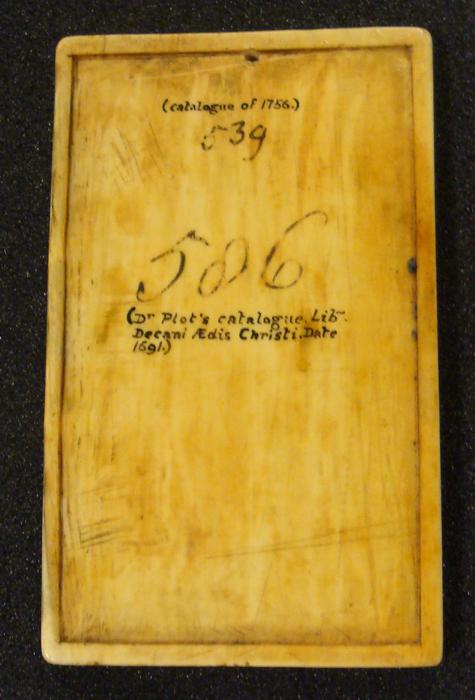 (catalogue of 1756.)
539
586
(Dr Plot's catalogue. Libr.
Decani Ædis Christi. Date
1691.)